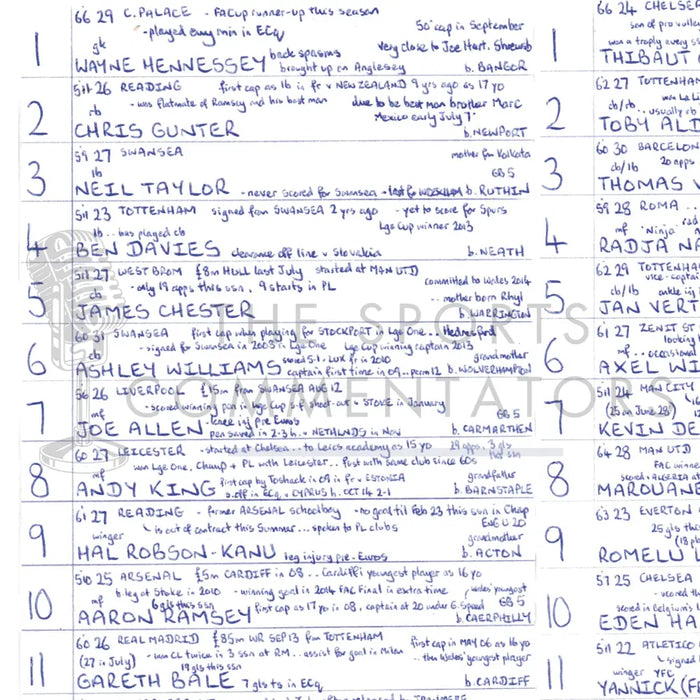 66 29 C.PALACE - FACup runner-up this season
-played every min in ECq 50th cap in September
gk back spasms very close to Joe Hart. Shrewsb
1 WAYNE HENNESSEY brought up on Anglesey b. BANGOR
5'11 26 READING first cap as 16 is fr v NEW ZEALAND 9 yrs ago as 17 yo
rb - was flatmate of Ramsey and his best man due to be best man brother Marc
Mexico early July
2 CHRIS GUNTER b. NEWPORT
59 27 SWANSEA mother from Kolkata
lb GB 5
3 NEIL TAYLOR - never scored for Swansea b. RUTHIN
5'11 23 TOTTENHAM signed from SWANSEA 2 yrs ago - yet to score for Spurs
lb .. has played cb Lge Cup winner 2013
4 BEN DAVIES clearance off line v Slovakia b. NEATH
5'11 27 WEST BROM £8m HULL last July started at MAN UTD
cb - only 19 apps this ssn. 9 starts in PL committed to Wales 2014
.. mother born Rhyl
5 JAMES CHESTER b. WARRINGTON
60 31 SWANSEA first cap when playing for STOCKPORT in Lge One .. Hednesford
cb - signed for Swansea in 2008 in Lge One Lge Cup winning captain 2013
scored 5-1 LUX fr in 2010 grandmother
6 ASHLEY WILLIAMS captain first time in 09.. perm 12 b. WOLVERHAMPTON
56 26 LIVERPOOL £15m from SWANSEA AUG 12
mf - scored winning pen in Lge Cup s/f shoot-out v STOKE in January
- knee inj pre Euros GB 5
7 JOE ALLEN pen saved in 2-3 h. v NETHALNDS in Nov b. CARMARTHEN
60 27 LEICESTER - started at Chelsea.. to Leics academy as 15 yo 29 apps. 3 gls this ssn
mf won Lge One, Champ + PL with Leicester.. first with same club since 60s
first cap by Toshack in 09 in fr v ESTONIA grandfather
8 ANDY KING s.off in ECq v CYPRUS h. OCT 14 2-1 b. BARNSTAPLE
61 27 READING - former ARSENAL schoolboy - no goal til Feb 23 this ssn in Chap
winger - is out of contract this Summer... spoken to PL clubs ENG U 20
grandmother
9 HAL ROBSON-KANU leg injury pre-Euros b. ACTON
510 25 ARSENAL £5m CARDIFF in 08.. Cardiff's youngest player as 16 yo
mf b.leg at Stoke in 2010 - winning goal in 2014 FAC Final in extra time Wales' youngest
6 gls this ssn GB 5
10 AARON RAMSEY first cap as 17 yo in 08, captain at 20 under G.Speed b. CAERPHILLY
60 26 REAL MADRID £85m WR SEP13 from TOTTENHAM first cap in MAY 06 as 16 yo
(27 in July) - won CL twice in 3 ssn at RM... assist for goal in Milan .. then Wales' youngest player
19 gls this ssn
11 GARETH BALE 7 gls ts in ECq b. CARDIFF
THE SPORTS
COMMENTATORS
66 24 CHELSE
son of pro volley
won a trophy every s
1 THIBAUT
62 27 TOTTENHA
cb/rb..
usually rb
2 TOBY AL
60 30 BARCELON
cb/lb 20 apps
3 THOMAS V
59 28 ROMA
mf 'Ninja'
4 RADJA NA
62 29 TOTTENHA
vice-captain
cb/lb ankle inj
5 JAN VERT
61 27 ZENIT ST
looking
mf .. occasional
6 AXEL WI
5'11 24 MAN CITY
(25 on June 28)
7 KEVIN DE
64 28 MAN UTD
FAC winne
scored v ALGERIA at
8 MAROUANE
63 23 EVERTON
25 gls this
(18 pl
9 ROMELU
57 25 CHELSEA
- scored th
scored in Belgium's
10 EDEN HA
5'11 22 ATLETICO
- signed
winger YFC
11 YANNICK (FE